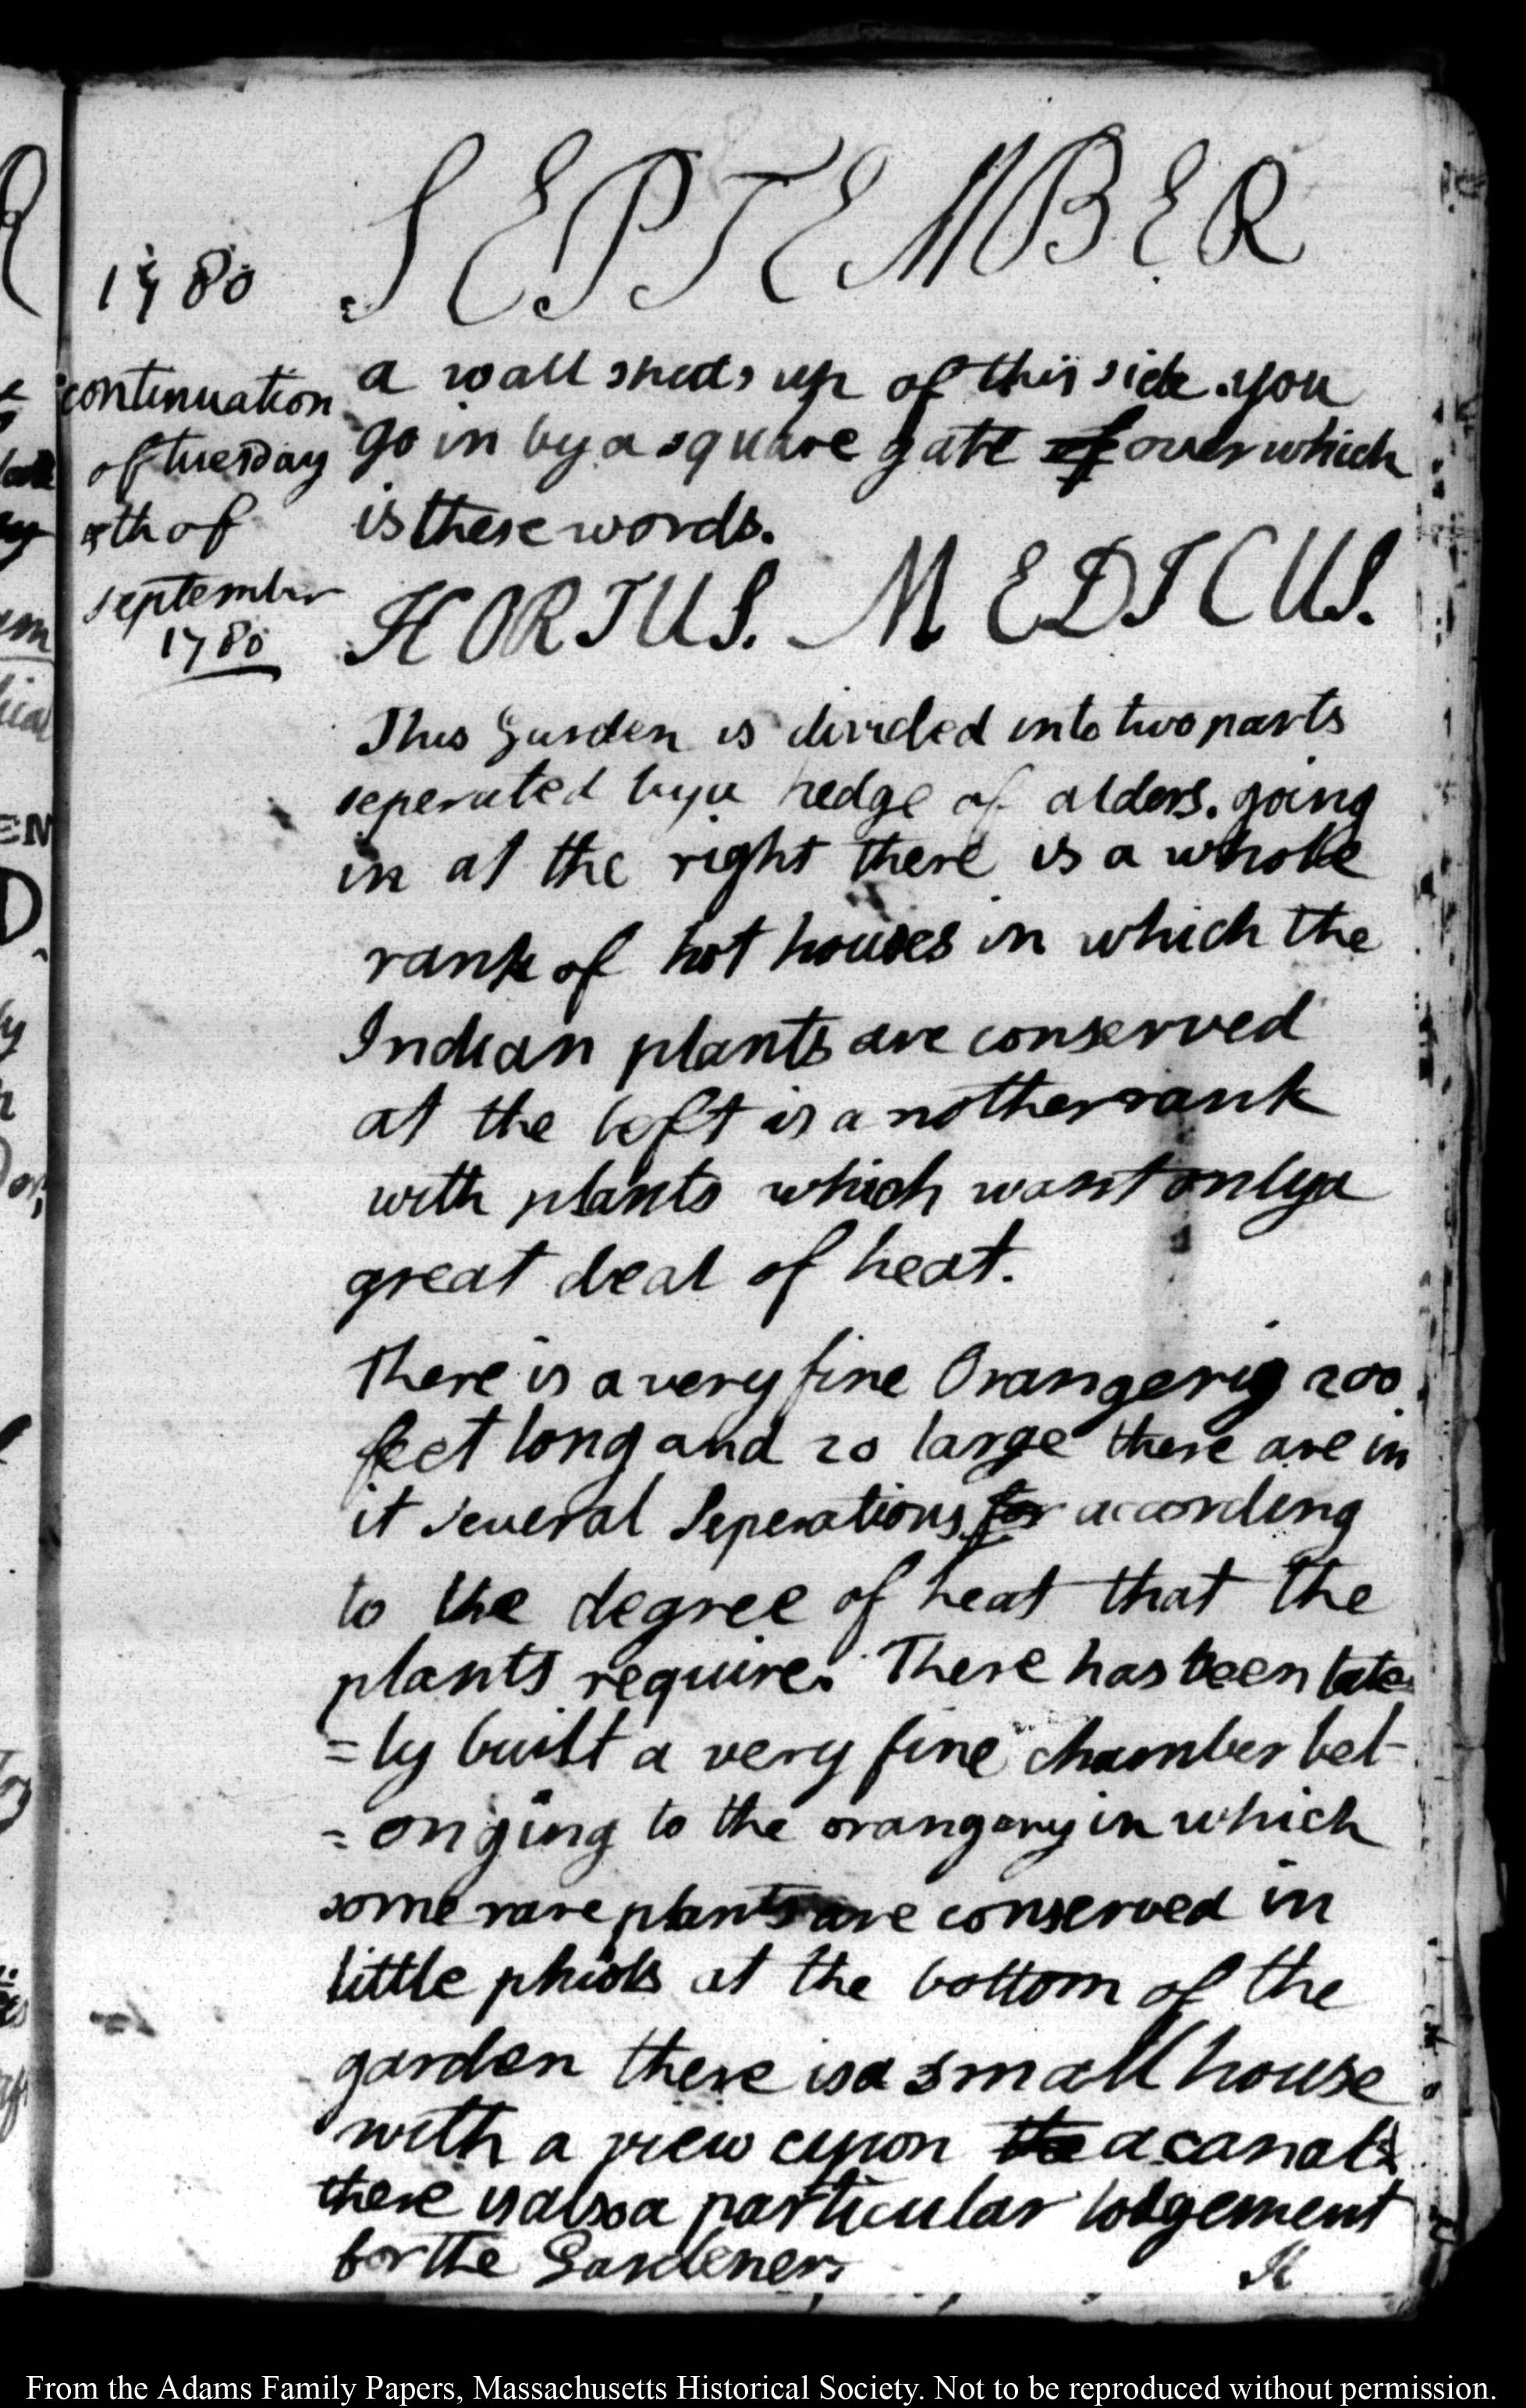 SEPTEMBER
1780
continuation
of tuesday
5th of
september
1780
a wall sheds up of this side. you
go in by a square gate of over which
is these words.
HORTUS. MEDICUS.
This Garden is divided into two parts
seperated by a hedge of alders. going
in at the right there is a whole
rank of hot houses in which the
Indian plants are conserved
at the left is another rank
with plants which want only a
great deal of heat.
There is a very fine Orangerig 200
feet long and 20 large there are in
it several Seperations for according
to the degree of heat that the
plants require. There has been late
=ly built a very fine chamber bel-
=onging to the orangery in which
some rare plants are conserved in
little phiols at the bottom of the
garden there is a small house
with a view upon the a canal
there is also a particular lodgement
for the Gardener.
From the Adams Family Papers, Massachusetts Historical Society. Not to be reproduced without permission.